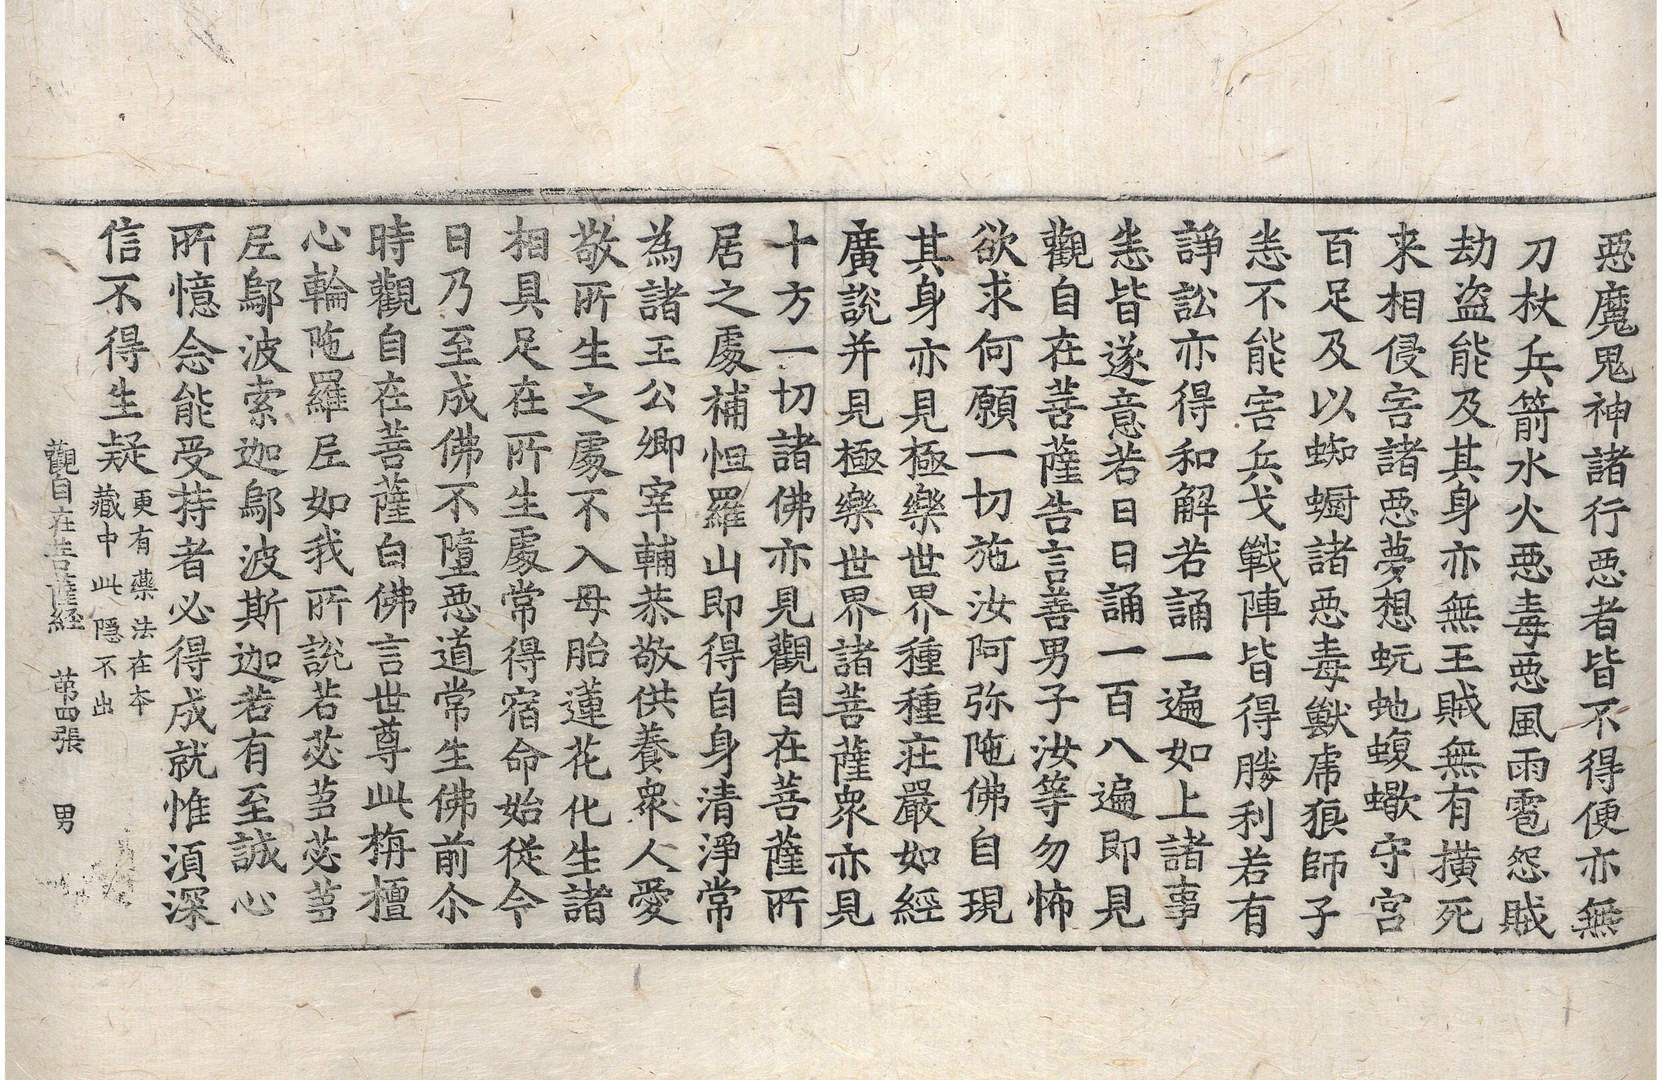 惡魔鬼神諸行惡者皆不得便亦無
刀杖兵箭水火惡毒惡風雨雹怨賊
劫盗能及其身亦無王賊無有橫死
来相侵害諸惡夢想蚖虵蝮蠍守宮
百足及以蜘蟵諸惡毒獸虎狼師子
恙不能害兵戈戰陣皆得勝利若有
諍訟亦得和解若誦一遍如上諸事
恙皆遂意若日日誦一百八遍即見
觀自在菩薩告言善男子汝等勿怖
欲求何願一切施汝阿弥陁佛自現
其身亦見極樂世界種種莊嚴如經
廣說并見極樂世界諸菩薩衆亦見
十方一切諸佛亦見觀自在菩薩所
居之處補怛羅山即得自身清淨常
為諸王公卿宰輔恭敬供養衆人愛
敬所生之處不入母胎蓮花化生諸
相具足在所生處常得宿命始從今
日乃至成佛不墮惡道常生佛前尒
時觀自在菩薩白佛言世尊此栴檀
心輪陁羅尼如我所說若苾蒭苾蒭
尼鄔波索迦鄔波斯迦若有至誠心
所憶念能受持者必得成就惟湏深
信不得生疑更有藥法在夲
藏中此隱不出
觀自在菩薩經 苐四張 男